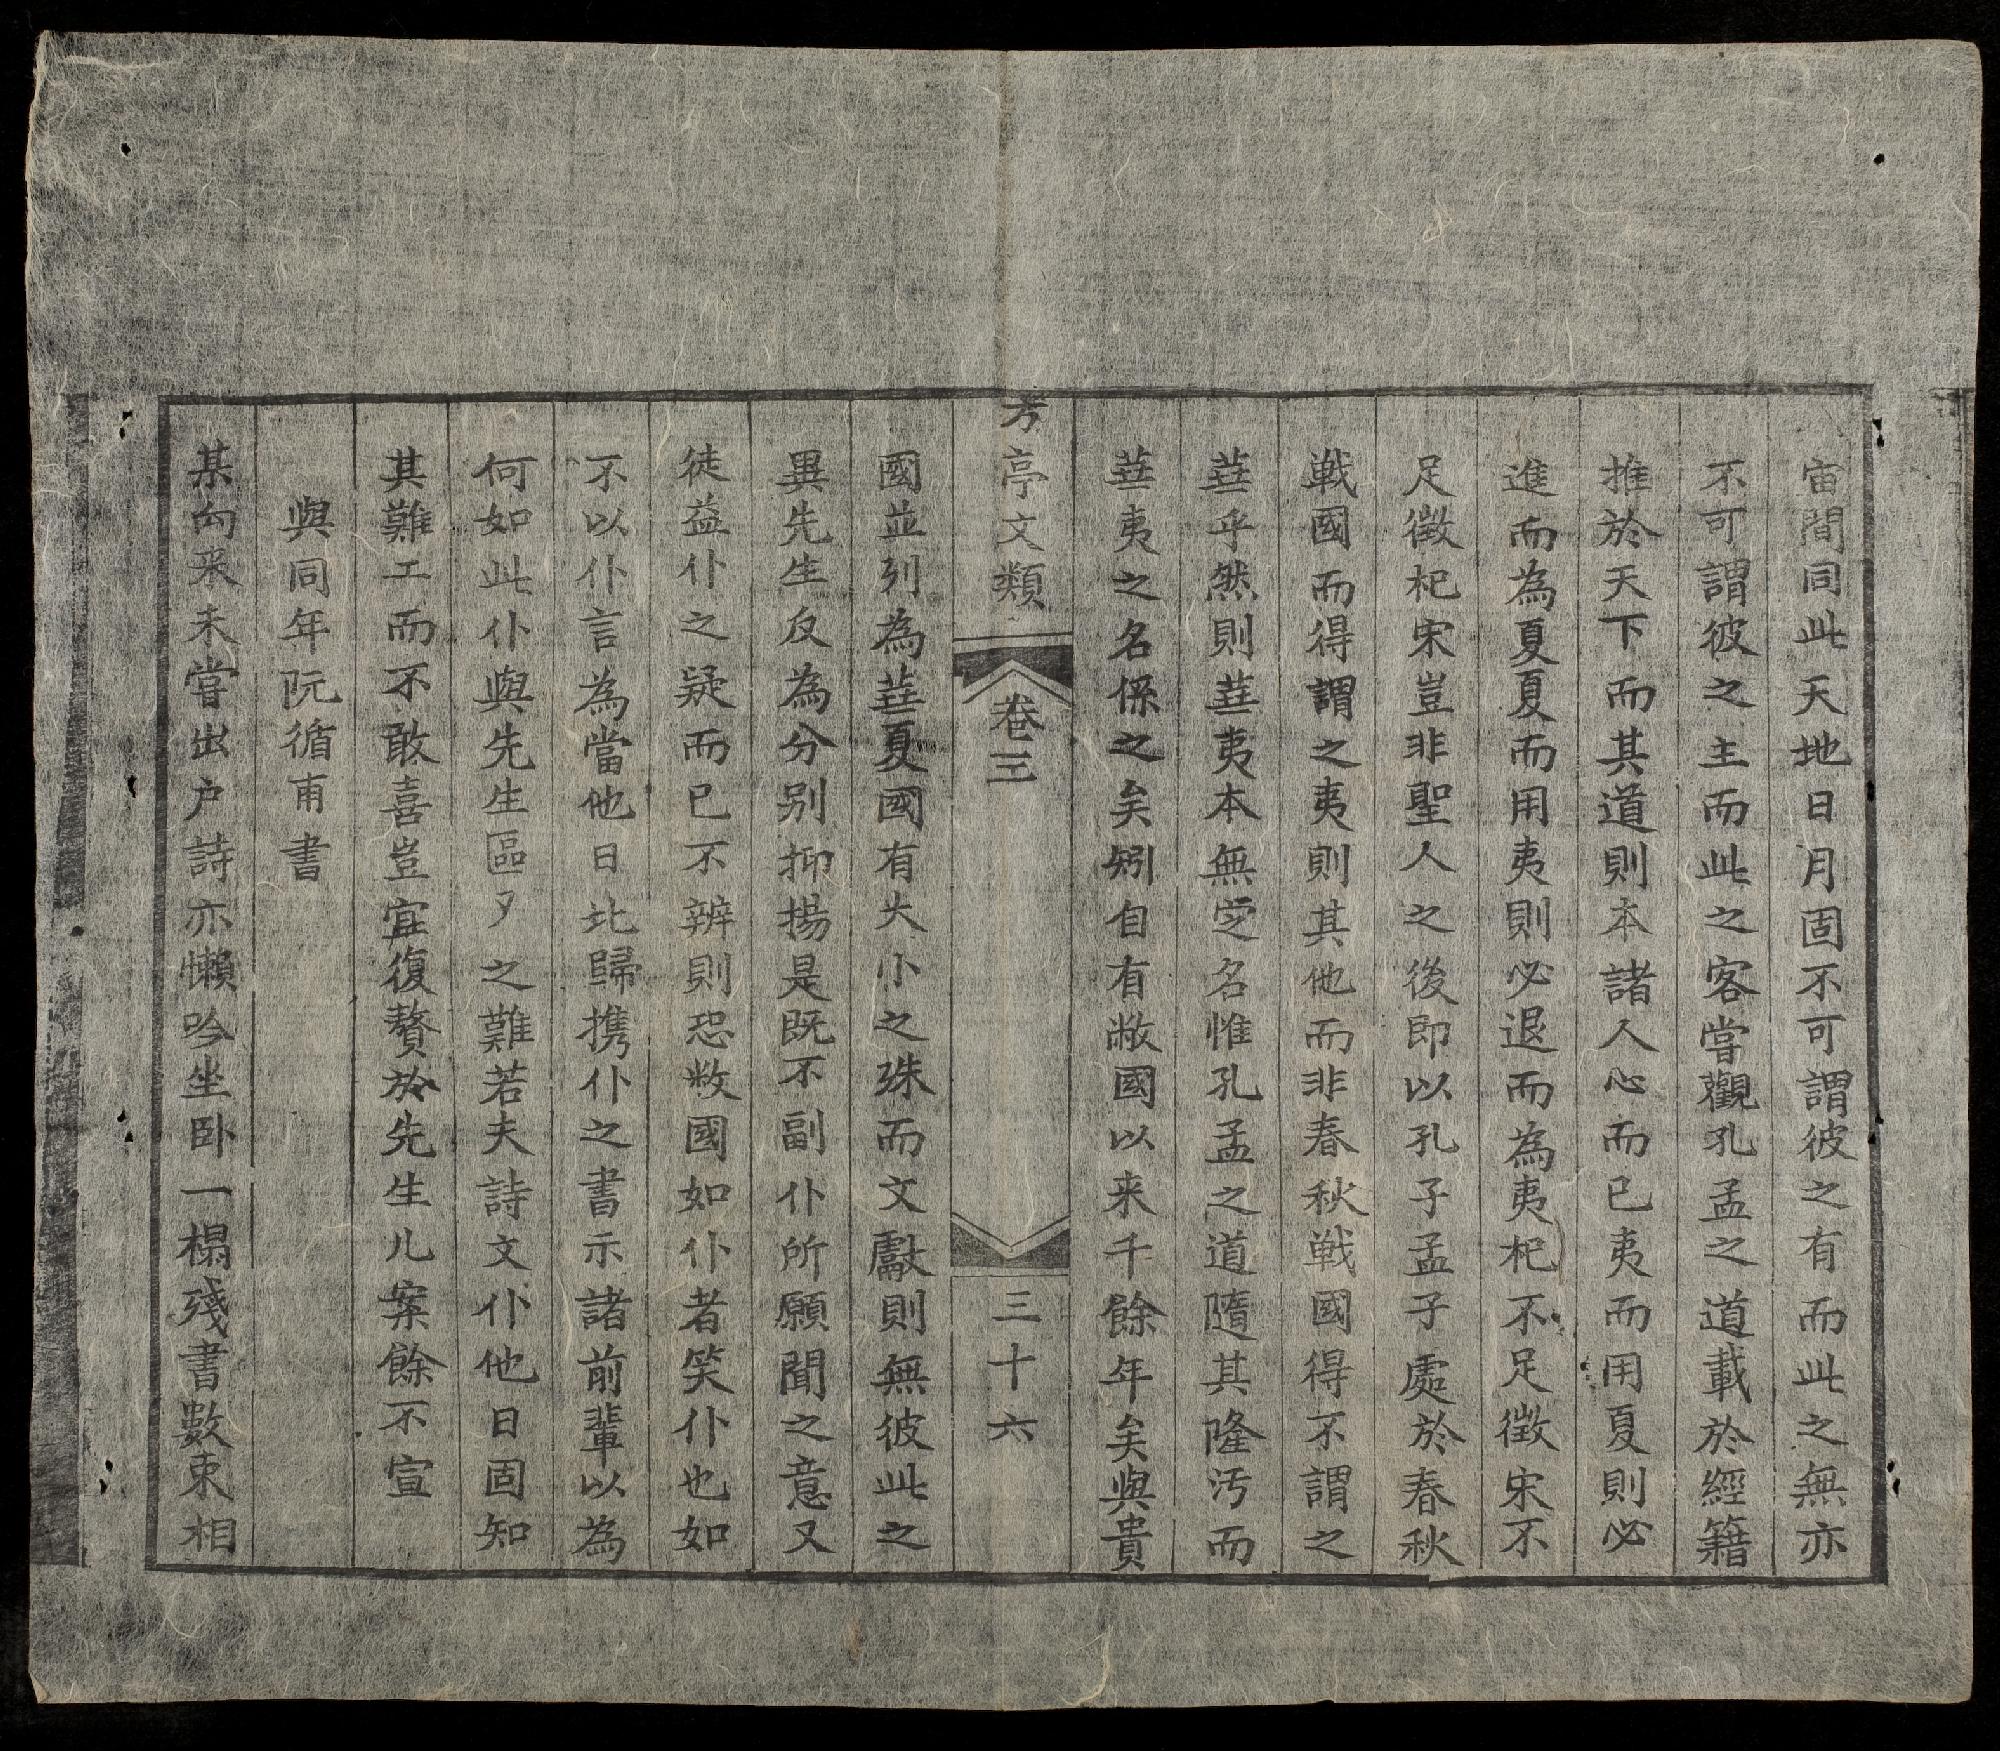 宙間同此天地日月固不可謂彼之有而此之無亦
不可謂彼之主而此之客嘗觀孔孟之道載於經籍
推於天下而其道則本諸人心而已夷而用夏則必
進而為夏夏而用夷則必退而為夷杞不足徵宋不
足徵杞宋豈非聖人之後即以孔子孟子處於春秋
戰國而得謂之夷則其他而非春秋戰國得不謂之
華乎然則華夷本無定名惟孔孟之道隨其隆汚而
華夷之名係之矣矧自有敝國以来千餘年矣與貴
方亭文類
卷三
三十六
國並列為華夏國有大小之殊而文獻則無彼此之
異先生反為分别抑揚是既不副仆所願聞之意又
徒益仆之疑而已不辨則恐敝國如仆者笑仆也如
不以仆言為當他日北歸携仆之書示諸前輩以為
何如此仆與先生區夕之難若夫詩文仆他日固知
其難工而不敢喜豈宜復贅於先生儿案餘不宣
與同年阮循甫書
某向来未嘗出户詩亦懶吟坐卧一榻殘書數束相